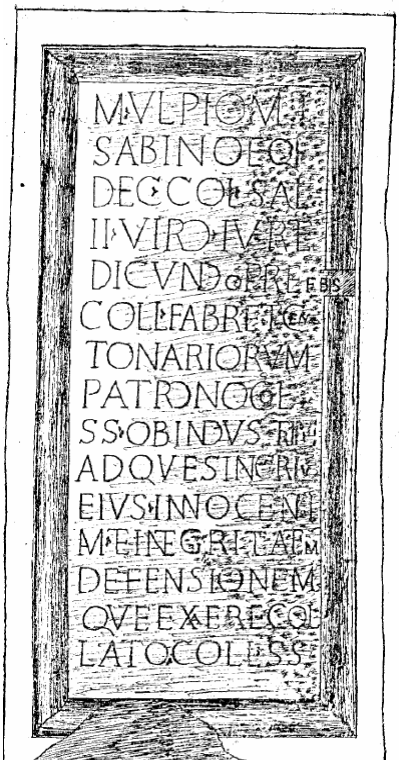 M·VLPIO·M·F
SABINO EQ
DEC·COL·SAL
II·VIRO·IVRE
DICVNDO PREFEBIS
COLL·FABRET CEN
TONARIORVM
PATRONO COL
SS·OB INDVSTRI
ADQVE SING
EIVS·INNOCENT
M·EINEGRITAEM
DEFENSIONEM
QVE EX ERE COL
LATO COLL·SS